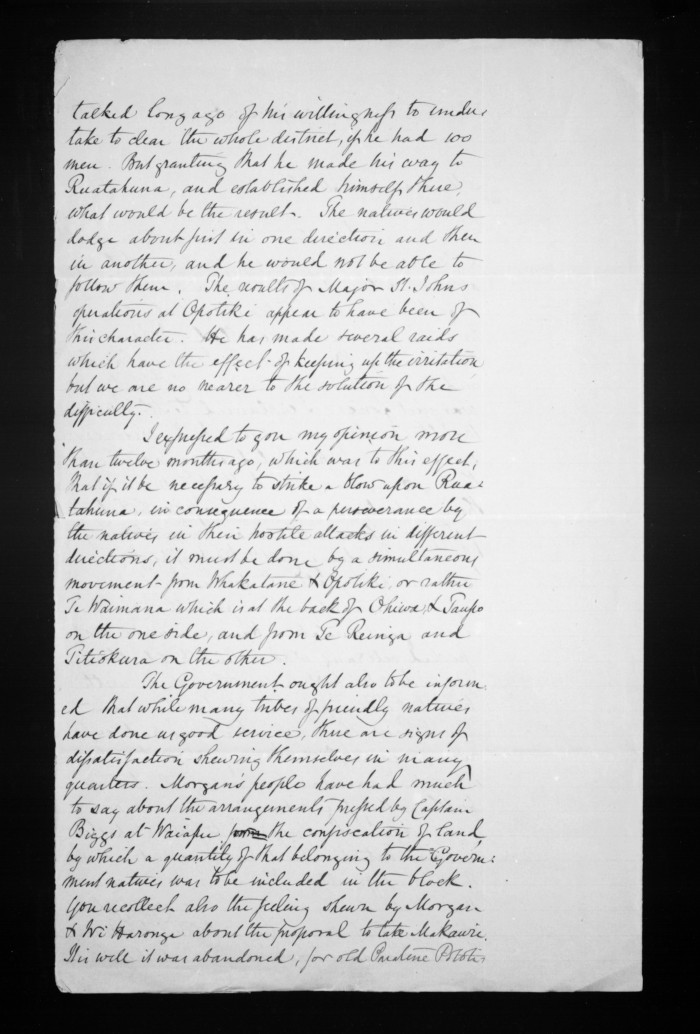 talked long ago of his willingness to under
take to clear the whole district, if he had 100
men. But granting that he made his way to
Ruatahuna, and established himself there,
what would be the result. The natives would
dodge about first in one direction and then
in another, and he would not be able to
follow them. The results of Major St. Johns
operations at Opotiki appear to have been of
this character. He has made several raids
which have the effect of keeping up the irritation
but we are no nearer to the solution of the
difficulty.
I expressed to you my opinion more
than twelve months ago, which was to this effect,
that if it be necessary to strike a blow upon Rua-
tahuna, in consequence of a perseverance by
the natives in their hostile attacks in different
directions, it must be done by a simultaneous
movement from Whakatane & Opotiki or rather
Te Waimana which is at the back of Ohiwa, & Taupo
on the one side, and from Te Reinga and
Titiokura on the other.
The Government ought also to be inform-
ed that while many tribes of friendly natives
have done us good service, there are signs of
dissatisfaction shewing themselves in many
quarters. Morgan's people have had much
to say about the arrangements pressed by Captain
Biggs at Waiapu the confiscation of land,
by which a quantity of that belonging to the Govern:
ment natives was to be included in the block.
You recollect also the feeling shewn by Morgan
& Wi Haronga about the proposal to take Makawiri.
It is well it was abandoned, for old